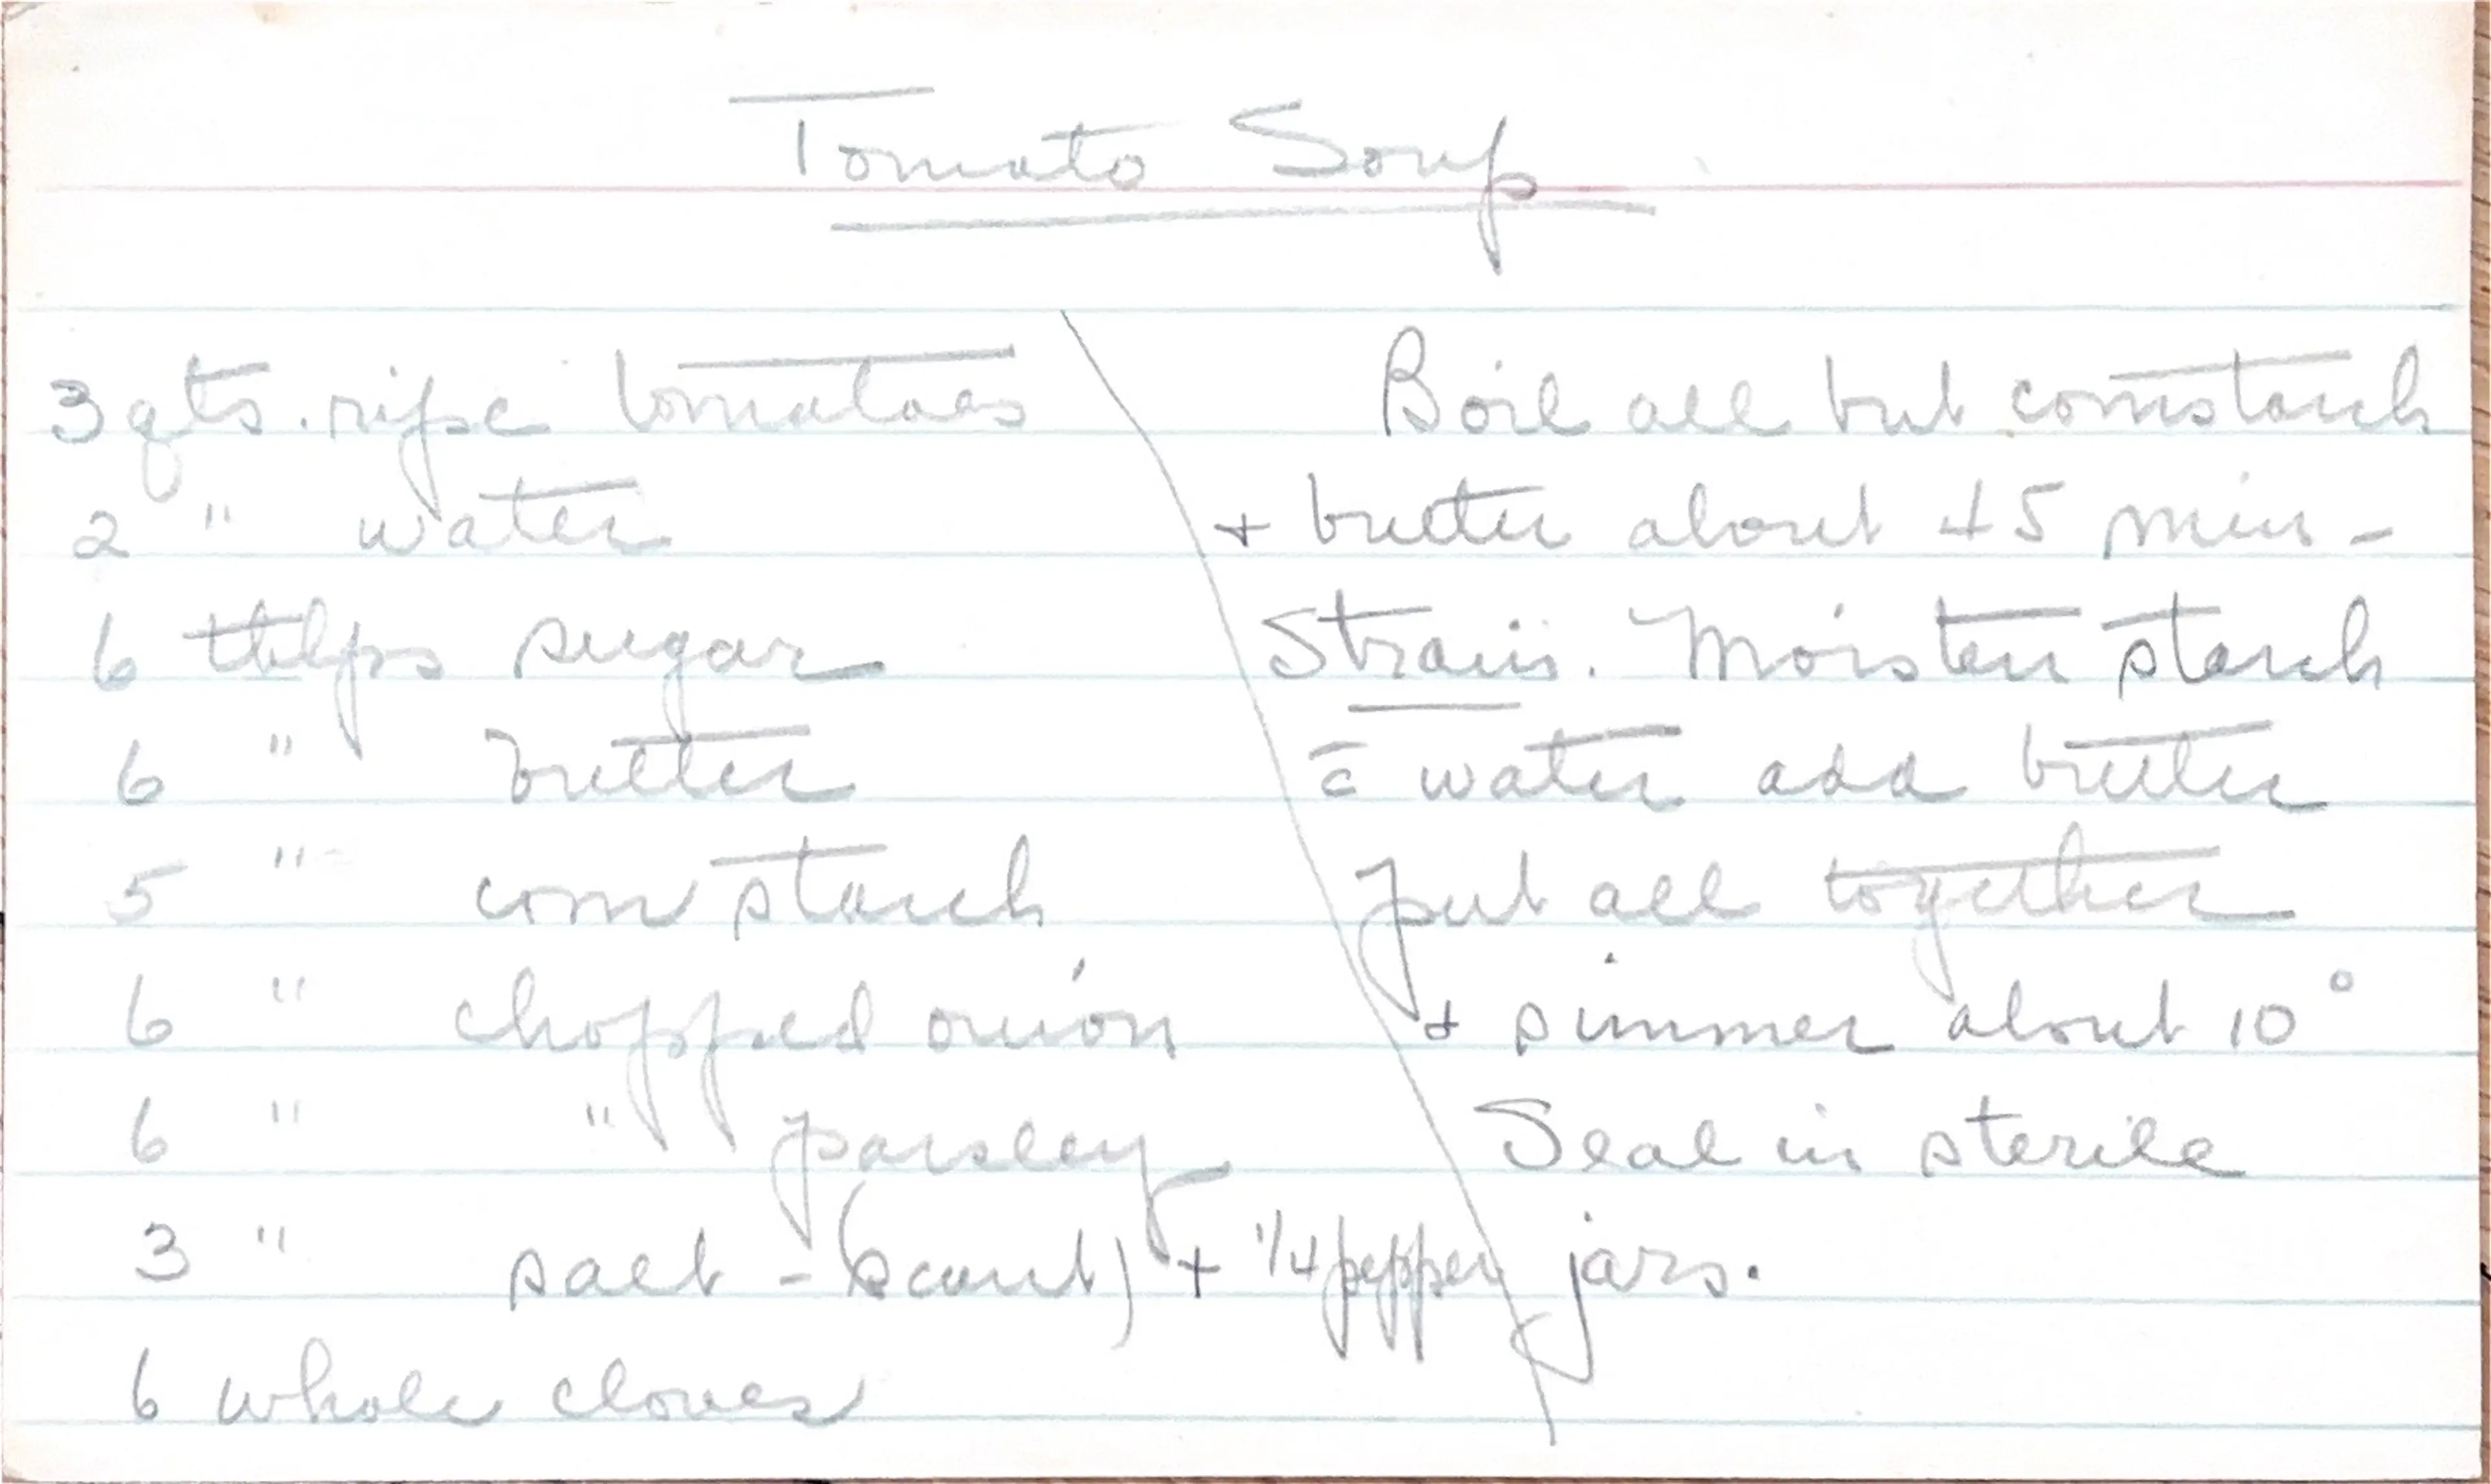 Tomato Soup
3 qts. ripe tomatoes
2 " water
6 tblps sugar
6 " butter
5 " corn starch
6 " chopped onion
6 " " parsley
3 " salt - (scant) + 1/4 pepper
6 whole cloves
Boil all but cornstarch
+ butter about 45 min -
Strain. Moisten starch
c̄ water add butter
put all together
+ simmer about 10°
Seal in sterile
jars.